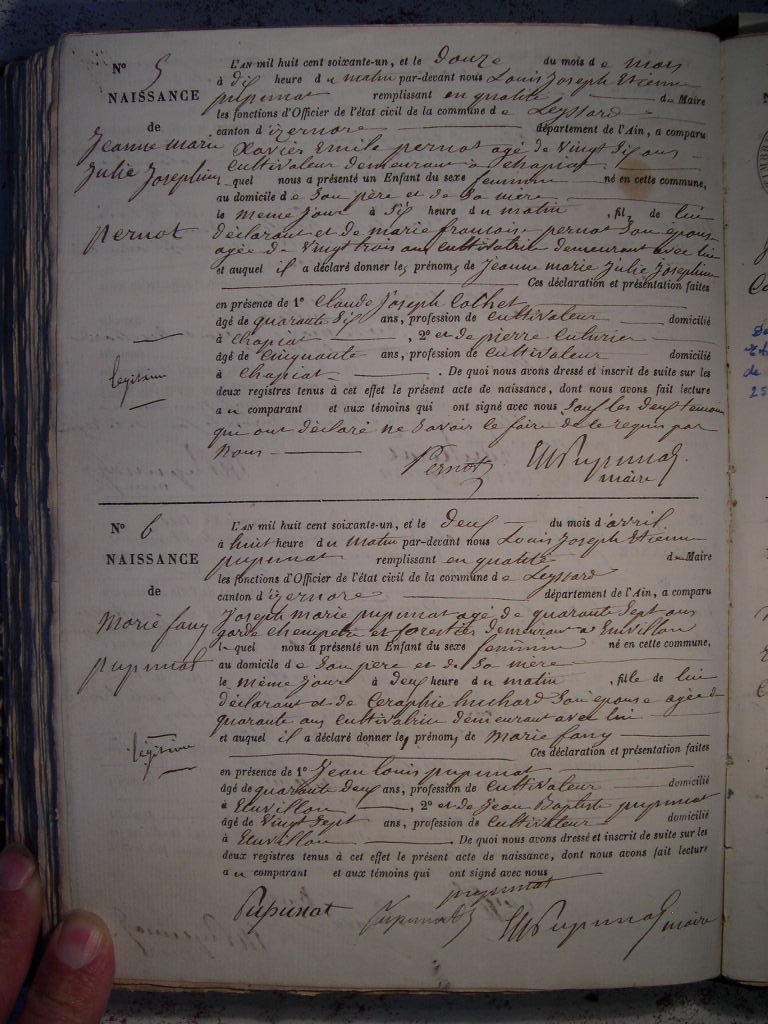 N° 5
NAISSANCE
de
Jeanne marie
Julie Josephine
pernot
legitime
L'AN mil huit cent soixante-un, et le douze du mois de mars
à dix heure du matin par-devant nous Louis Joseph Etienne
pupunat remplissant en qualité de Maire
les fonctions d'Officier de l'état civil de la commune de Leyssard
canton d'izernore département de l'Ain, a comparu
Xavier Emile pernot agé de Vingt Six ans
Cultivateur demeurant à Chapiat
lequel nous a présenté un Enfant du sexe feminin né en cette commune,
au domicile de Son père et de Sa mère
le même Jour à Six heure du matin , fille de lui
déclarant et de marie francoise pernot Son epouse
agée de Vingt trois ans Cultivatrice demeurant avec lui
et auquel il a déclaré donner les prénoms de Jeanne marie Julie Josephine
Ces déclaration et présentation faites
en présence de 1° Claude Joseph Colhet
âgé de quarante Six ans, profession de Cultivateur domicilié
à Chapiat , 2° et de pierre Cuturier
âgé de Cinquante ans, profession de Cultivateur domicilié
à Chapiat . De quoi nous avons dressé et inscrit de suite sur les
deux registres tenus à cet effet le présent acte de naissance, dont nous avons fait lecture
au comparant et aux témoins qui ont signé avec nous Sauf les deux temoins
qui ont déclaré ne Savoir le faire de ce requis par
Nous
Pernot Pupunat
maire
N° 6
NAISSANCE
de
Marie fany
pupunat
legitime
L'AN mil huit cent soixante-un, et le deux du mois d'avril
à huit heure du matin par-devant nous Louis Joseph Etienne
pupunat remplissant en qualité de Maire
les fonctions d'Officier de l'état civil de la commune de Leyssard
canton d'izernore département de l'Ain, a comparu
Joseph marie pupunat agé de quarante Sept ans
garde champetre et forestier demeurant à Euvillon
lequel nous a présenté un Enfant du sexe feminin né en cette commune,
au domicile de Son père et de Sa mère
le même Jour à deux heure du matin , fille de lui
déclarant et de Ceraphie huchard Son epouse agée de
quarante ans Cultivatrice demeurant avec lui
et auquel il a déclaré donner les prénoms de Marie fany
Ces déclaration et présentation faites
en présence de 1° Jean Louis pupunat
âgé de quarante deux ans, profession de Cultivateur domicilié
à Euvillon , 2° et de Jean Baptiste pupunat
âgé de Vingt Sept ans, profession de Cultivateur domicilié
à Euvillon . De quoi nous avons dressé et inscrit de suite sur les
deux registres tenus à cet effet le présent acte de naissance, dont nous avons fait lecture
au comparant et aux témoins qui ont signé avec nous
pupunat
Pupunat Pupunat Pupunat maire